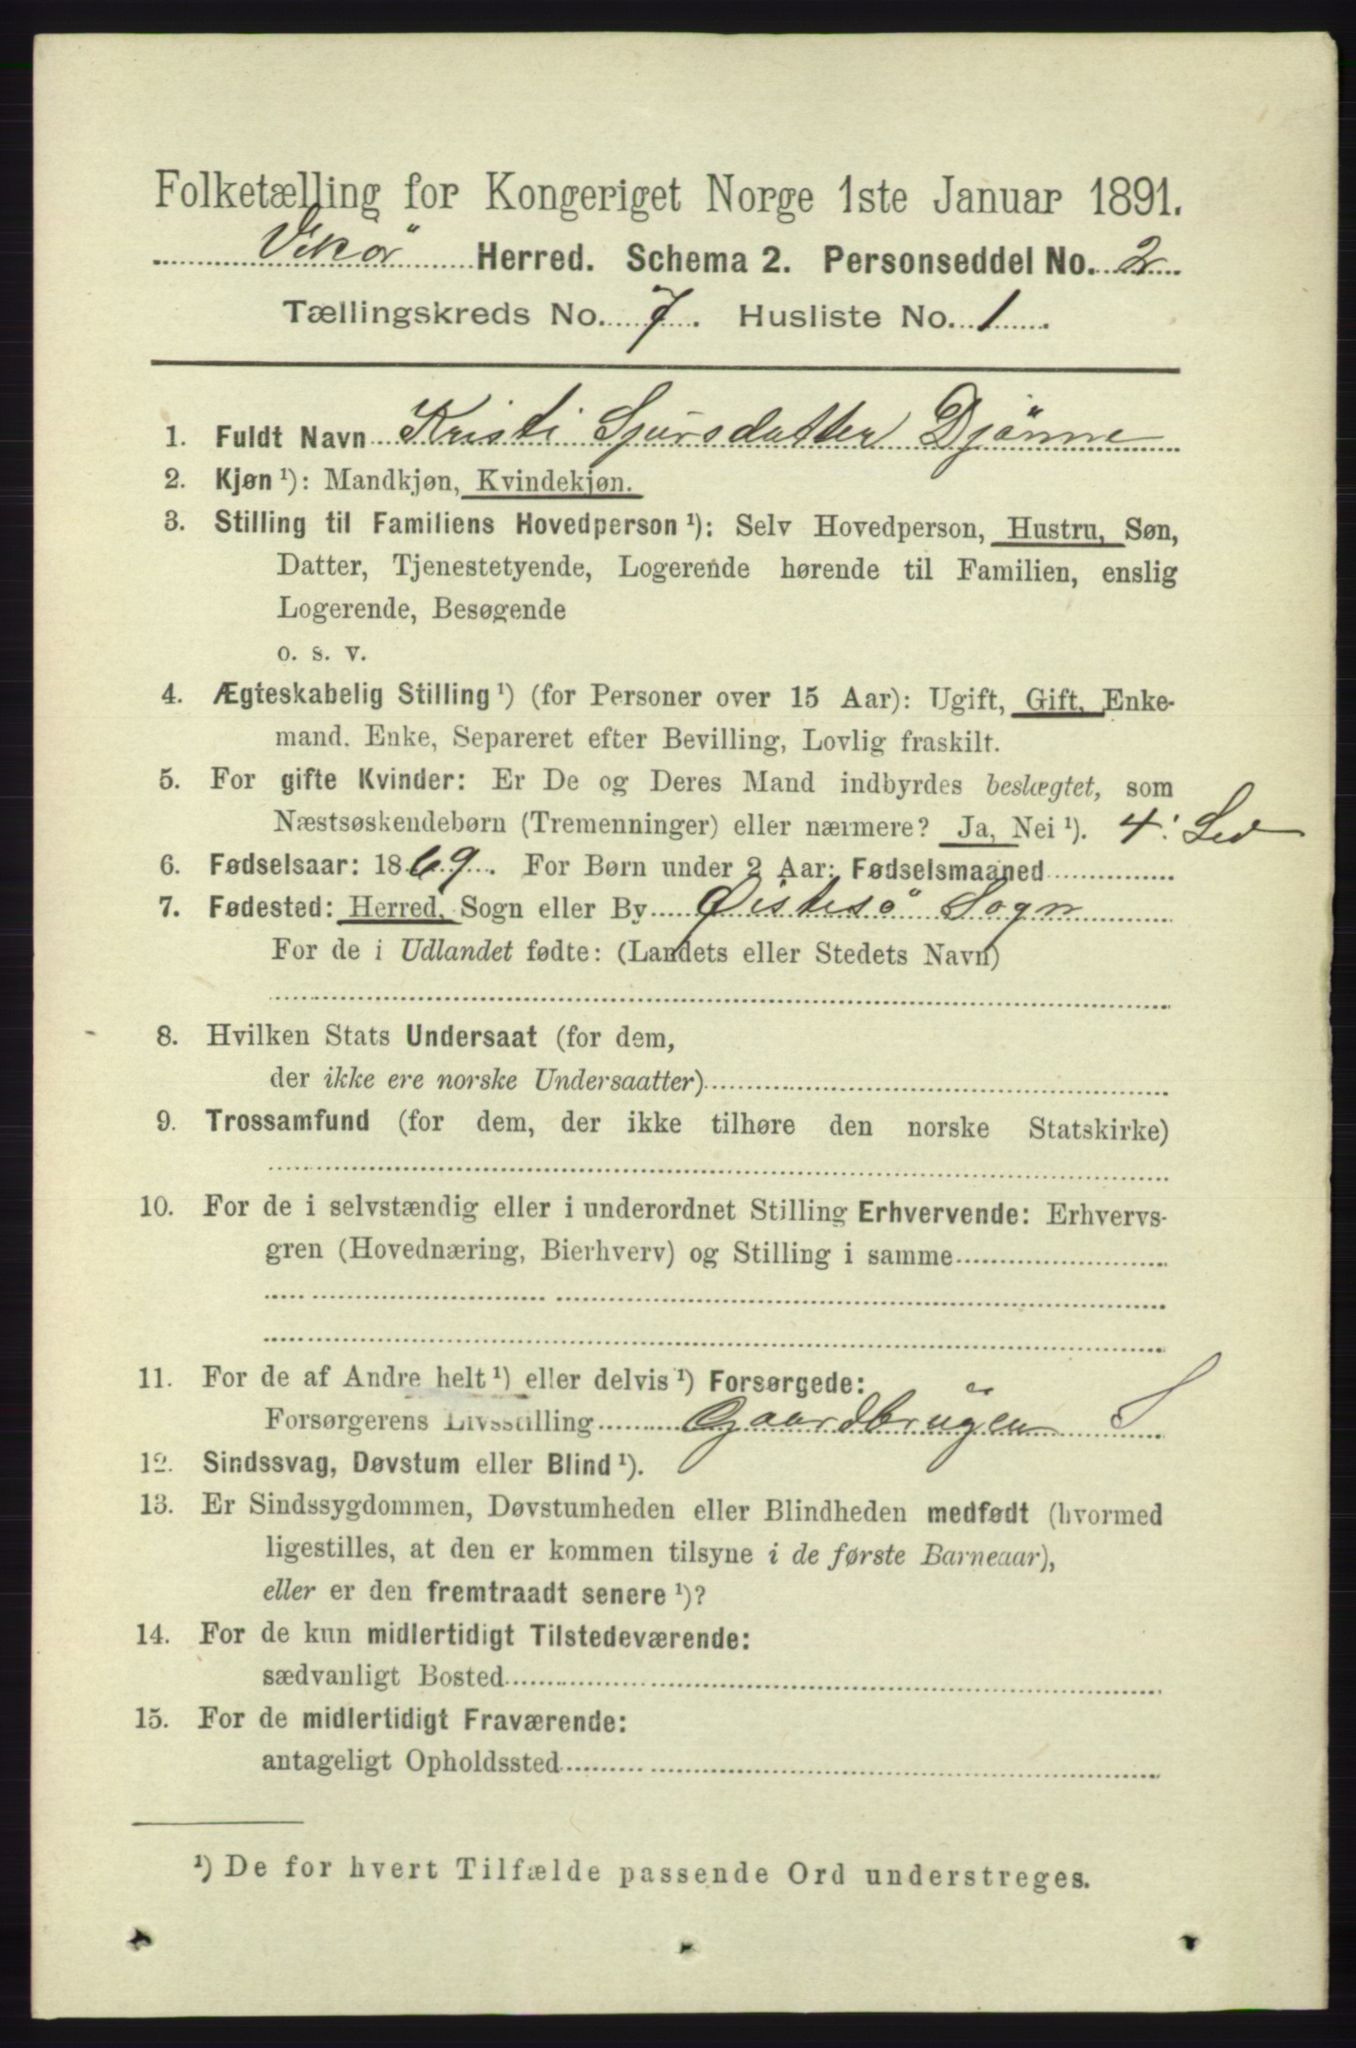 Folketælling for Kongeriget Norge 1ste Januar 1891.
Vikör Herred. Schema 2. Personseddel No. 2
Tællingskreds No. 7. Husliste No. 1
1. Fuldt Navn Kristi Sjursdatter Djönne
2. Kjøn ¹): Mandkjøn, Kvindekjøn.
3. Stilling til Familiens Hovedperson ¹): Selv Hovedperson, Hustru, Søn,
Datter, Tjenestetyende, Logerende hørende til Familien, enslig
Logerende, Besøgende
o. s. v.
4. Ægteskabelig Stilling ¹) (for Personer over 15 Aar): Ugift, Gift, Enke-
mand. Enke, Separeret efter Bevilling, Lovlig fraskilt.
5. For gifte Kvinder: Er De og Deres Mand indbyrdes beslægtet, som
Næstsøskendebørn (Tremenninger) eller nærmere? Ja, Nei ¹). 4: Led
6. Fødselsaar: 1869. For Børn under 2 Aar: Fødselsmaaned
7. Fødested: Herred, Sogn eller By Øistesö Sogn
For de i Udlandet fødte: (Landets eller Stedets Navn)
8. Hvilken Stats Undersaat (for dem,
der ikke ere norske Undersaatter)
9. Trossamfund (for dem, der ikke tilhøre den norske Statskirke)
10. For de i selvstændig eller i underordnet Stilling Erhvervende: Erhvervs-
gren (Hovednæring, Bierhverv) og Stilling i samme
11. For de af Andre helt ¹) eller delvis ¹) Forsørgede:
Forsørgerens Livsstilling Gaardbruger S
12. Sindssvag, Døvstum eller Blind ¹).
13. Er Sindssygdommen, Døvstumheden eller Blindheden medfødt (hvormed
ligestilles, at den er kommen tilsyne i de første Barneaar),
eller er den fremtraadt senere ¹)?
14. For de kun midlertidigt Tilstedeværende:
sædvanligt Bosted
15. For de midlertidigt Fraværende:
antageligt Opholdssted
¹) De for hvert Tilfælde passende Ord understreges.